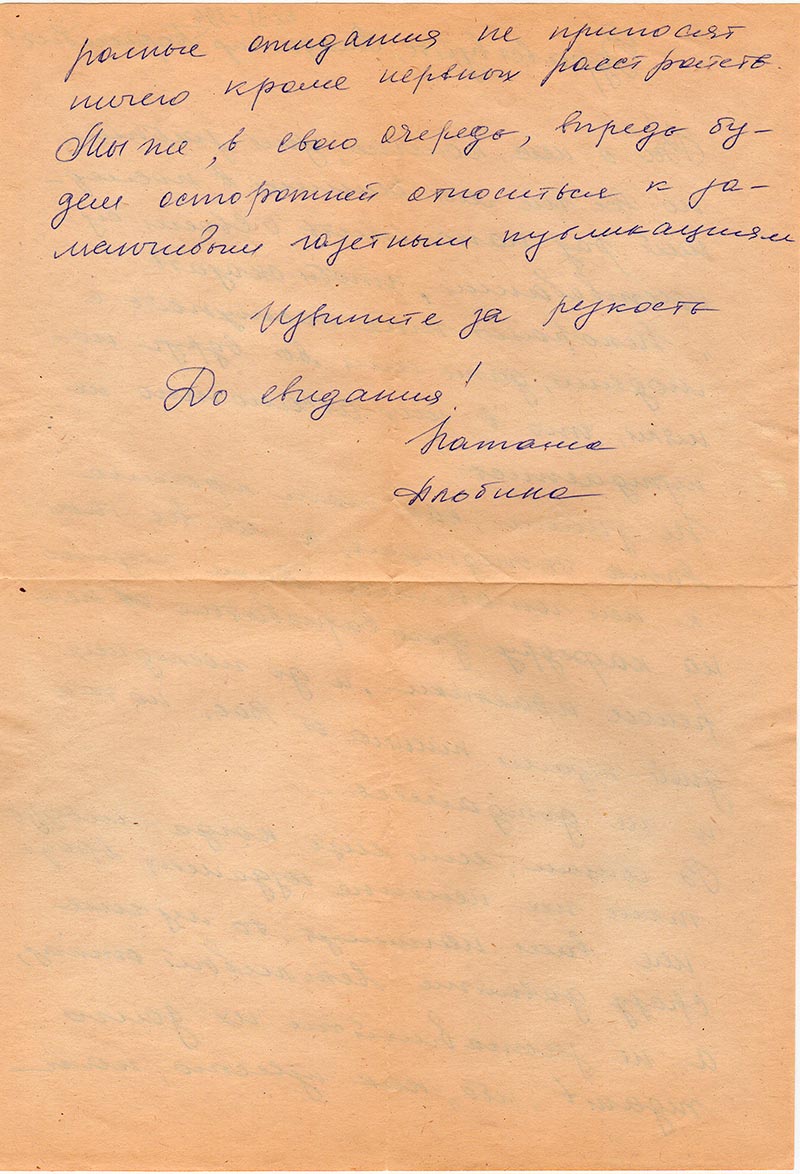 ролные ожидания не приносят
ничего кроме нервных расстройств.
Мы же, в свою очередь, впредь бу-
дем осторожней относиться к за-
манчивым газетным публикациям
Извините за резкость
До свидания!
Наташа
Альбина